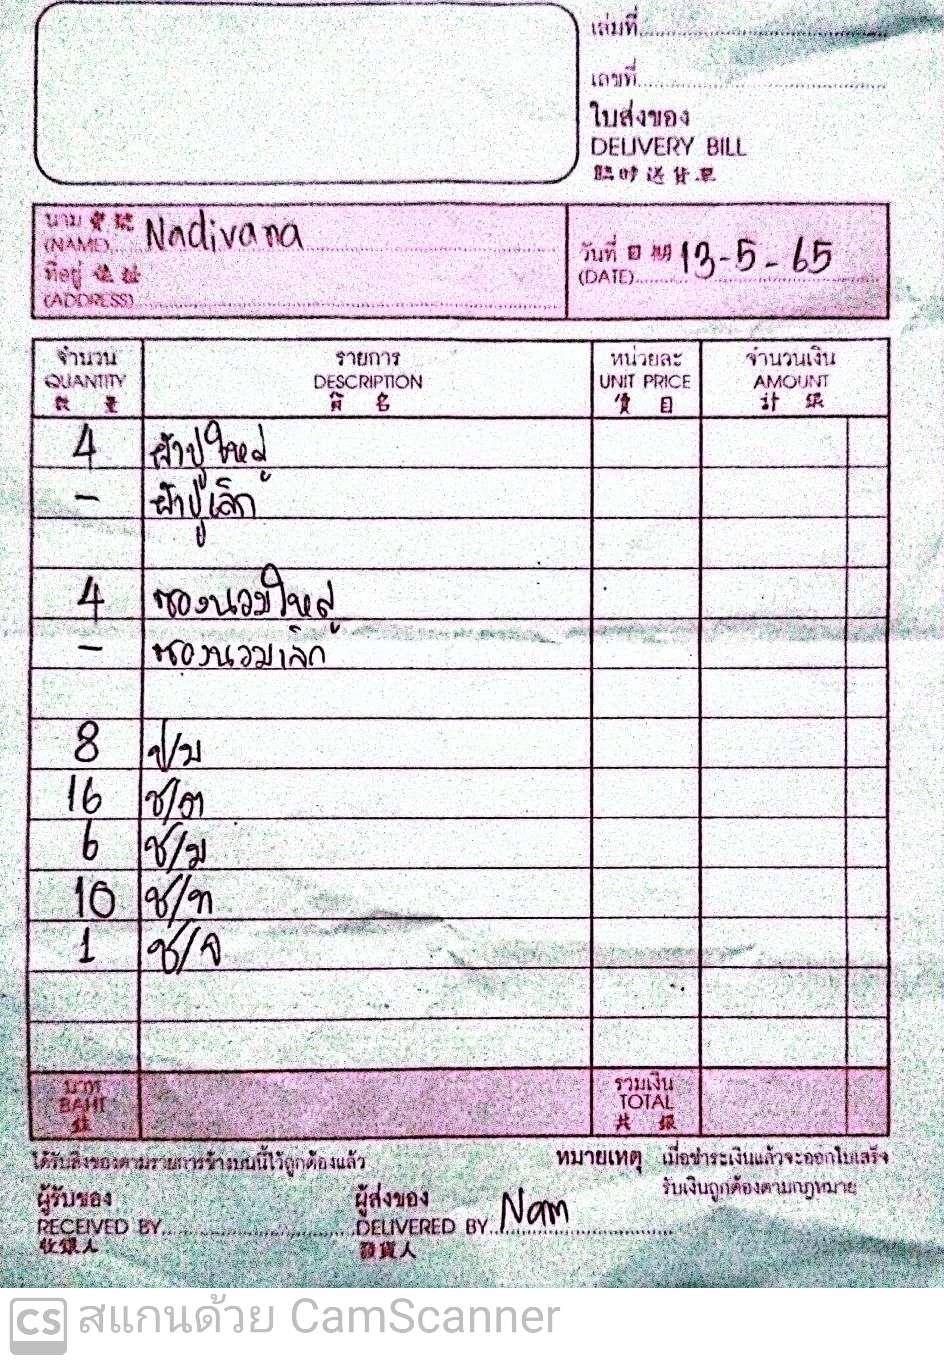 เล่มที่
เลขที่
ใบส่งของ
DELIVERY BILL
臨時送貨單
นาม 寶號
(NAME) Nadivana
ที่อยู่ 住址
(ADDRESS)
วันที่ 日期 13-5-65
(DATE)
จำนวน รายการ หน่วยละ จำนวนเงิน
QUANTITY DESCRIPTION UNIT PRICE AMOUNT
數量 貨名 價目 計銀
4 ผ้าปูใหญ่
- ผ้าปูเล็ก
4 ซองนวมใหญ่
- ซองนวมเล็ก
8 ป/ม
16 ช/ต
6 ช/ม
10 ช/ท
1 ช/จ
บาท รวมเงิน
BAHT TOTAL
銖 共銀
ได้รับสิ่งของตามรายการข้างบนนี้ไว้ถูกต้องแล้ว หมายเหตุ เมื่อชำระเงินแล้วจะออกใบเสร็จ
รับเงินถูกต้องตามกฎหมาย
ผู้รับของ ผู้ส่งของ
RECEIVED BY DELIVERED BY Nam
收貨人 發貨人
CS สแกนด้วย CamScanner